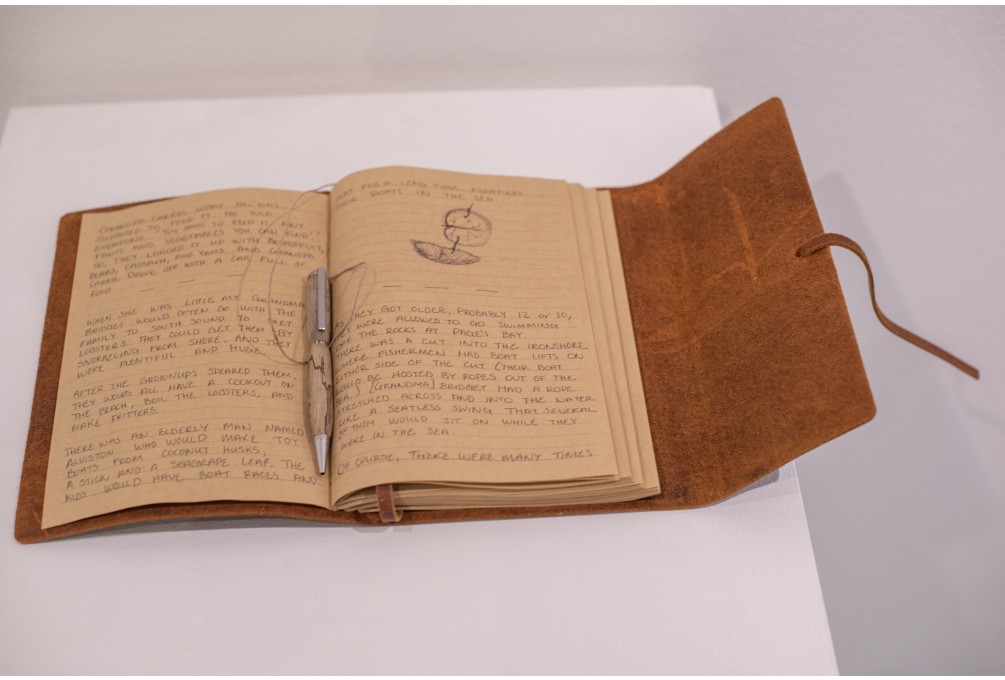 GRANDPA CARROL WHAT HE WAS
SUPPOSED TO FEED IT. HE TOLD
EVERYONE "YOU HAVE TO FEED IT ANY
FRUITS AND VEGETABLES YOU CAN FIND!"
SO, THEY LOADED IT UP WITH BREADFRUIT,
PEARS, CASSAVA, AND YAMS, AND GRANDPA
CARROL DROVE OFF WITH A CAR FULL OF
FOOD.
WHEN SHE WAS LITTLE, MY GRANDMA
BRIDGET WOULD OFTEN GO WITH THE
FAMILY TO SOUTH SOUND TO GET
LOBSTERS. THEY COULD GET THEM BY
SNORKELING FROM SHORE, AND THEY
WERE PLENTIFUL AND HUGE.
AFTER THE GROWNUPS SPEARED THEM,
THEY WOULD ALL HAVE A COOKOUT ON
THE BEACH, BOIL THE LOBSTERS, AND
MAKE FRITTERS.
THERE WAS AN ELDERLY MAN NAMED
ALVISTON WHO WOULD MAKE TOY
BOATS FROM COCONUT HUSKS,
A STICK AND A SEAGRAPE LEAF. THE
KIDS WOULD HAVE BOAT RACES AND
FOR A LONG TIME FLOATING
THEIR BOATS IN THE SEA.
AS THEY GOT OLDER, PROBABLY 12 OR SO,
THEY WERE ALLOWED TO GO SWIMMING
OFF THE ROCKS AT PAGE'S BAY.
THERE WAS A CUT INTO THE IRONSHORE
WHERE FISHERMEN HAD BOAT LIFTS ON
EITHER SIDE OF THE CUT (THEIR BOAT
WOULD BE HOSTED BY ROPES OUT OF THE
SEA.) [GRANDMA] BRIDGET HAD A ROPE
STRETCHED ACROSS AND INTO THE WATER
LIKE A SEATLESS SWING THAT SEVERAL
OF THEM WOULD SIT ON WHILE THEY
WERE IN THE SEA.
OF COURSE, THERE WERE MANY TIMES